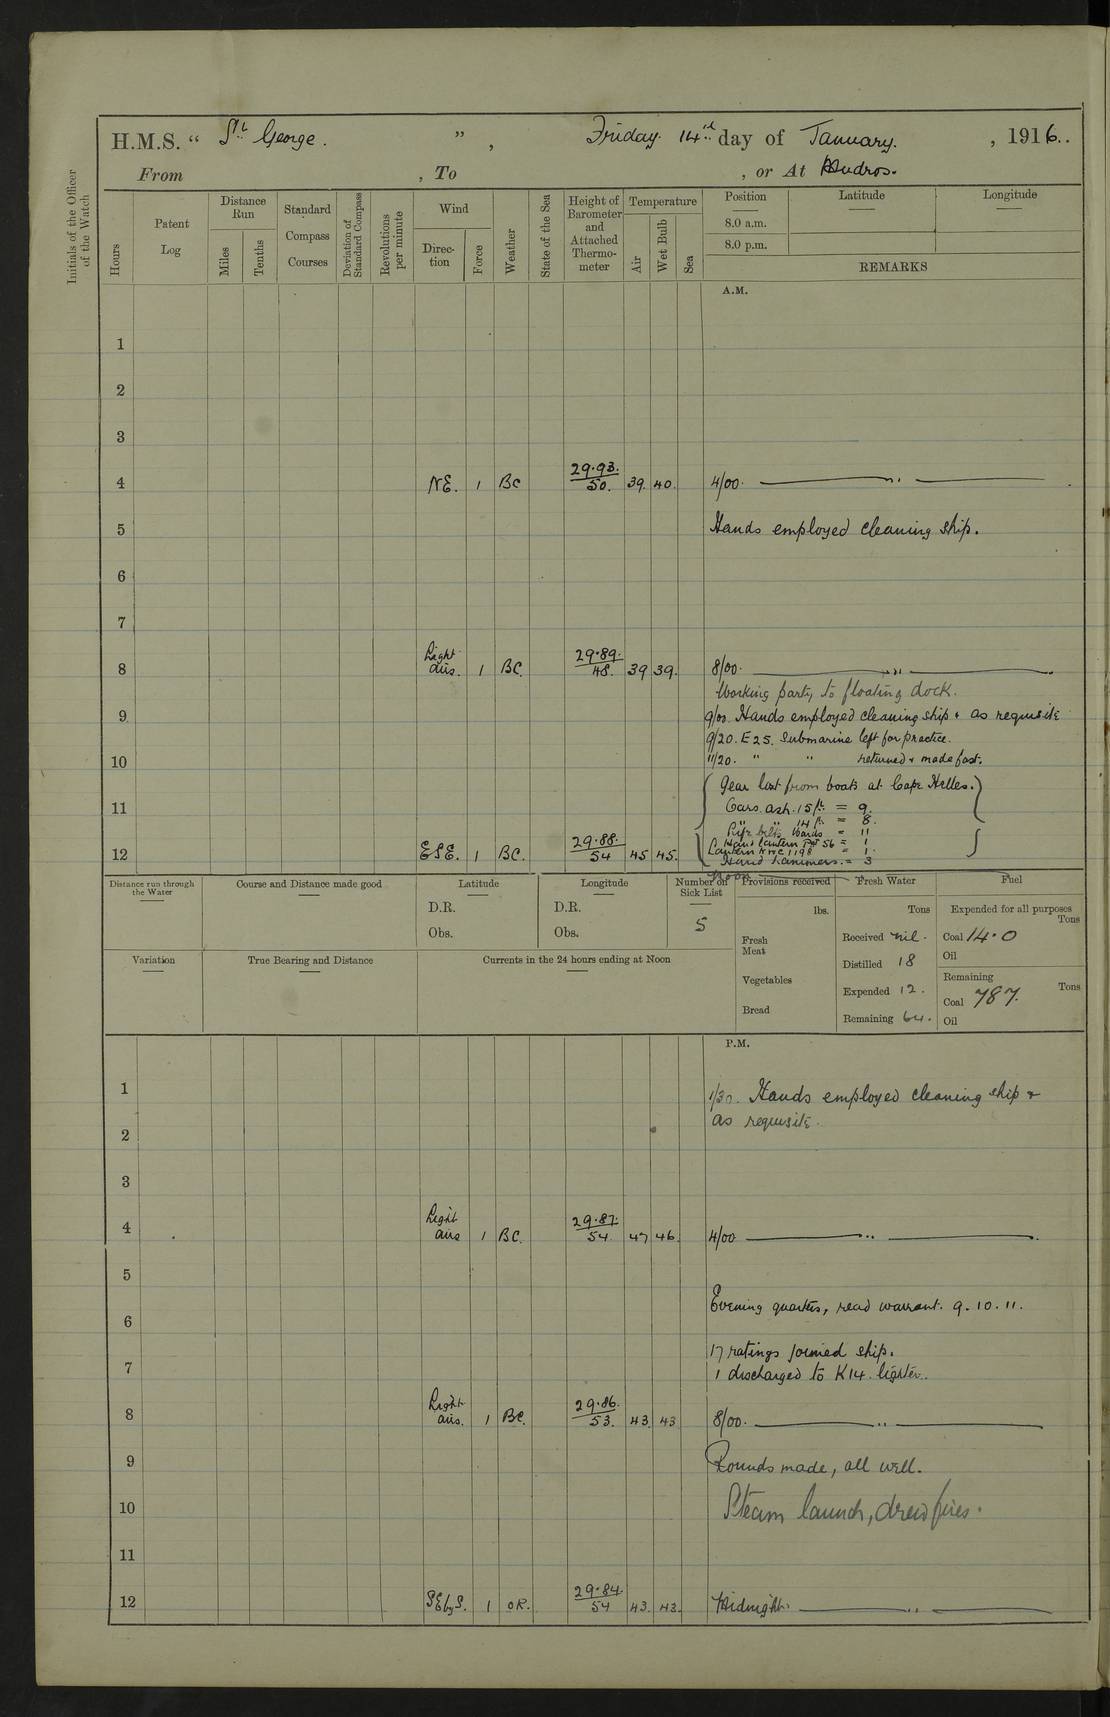 H.M.S. “ St. George. ”, Friday 14th day of January. , 1916..
From , To , or At Mudros.
Initials of the Officer of the Watch
Hours
Patent Log
Distance Run
Miles
Tenths
Standard Compass Courses
Deviation of Standard Compass
Revolutions per minute
Wind
Direction
Force
Weather
State of the Sea
Height of Barometer and Attached Thermometer
Temperature
Air
Wet Bulb
Sea
Position
8.0 a.m.
8.0 p.m.
Latitude
Longitude
REMARKS
A.M.
1
2
3
4 NE. 1 BC 29.93. 50. 39. 40. 4/00. "
5 Hands employed cleaning ship.
6
7
8 Light airs. 1 BC. 29.89. 48. 39 39. 8/00. "
Working party to floating dock.
9 9/00. Hands employed cleaning ship & as requisite
9/20. E25. Submarine left for practice.
10 11/20. " " returned & made fast.
Gear lost from boats at Cape Helles.
11 Oars. ash. 15 ft. = 9.
" " 14 ft. = 8.
Life belts = 11
Hand lantern Patt 56 = 1
12 ESE. 1 BC. 29.88. 54 45 45. Lantern 1198 = 1.
Hand hammers. = 3
Noon
Distance run through the Water
Course and Distance made good
Latitude
D.R.
Obs.
Longitude
D.R.
Obs.
Number on Sick List
5
Provisions received
lbs.
Fresh Meat
Vegetables
Bread
Fresh Water
Tons
Received nil.
Distilled 18
Expended 12.
Remaining 64.
Fuel
Expended for all purposes
Tons
Coal 14.0
Oil
Remaining
Tons
Coal 787.
Oil
Variation
True Bearing and Distance
Currents in the 24 hours ending at Noon
P.M.
1 1/30. Hands employed cleaning ship &
as requisite.
2
3
4 Light airs 1 BC. 29.87. 54. 47 46. 4/00 "
5
Evening quarters, read warrant. 9. 10. 11.
6
17 ratings joined ship.
7 1 discharged to K14. lighter.
8 Light airs. 1 BC. 29.86. 53. 43. 43 8/00. "
9 Rounds made, all well.
10 Steam launch, drew fires.
11
12 SEbyS. 1 OR. 29.84. 54 43. 43. Midnight. "